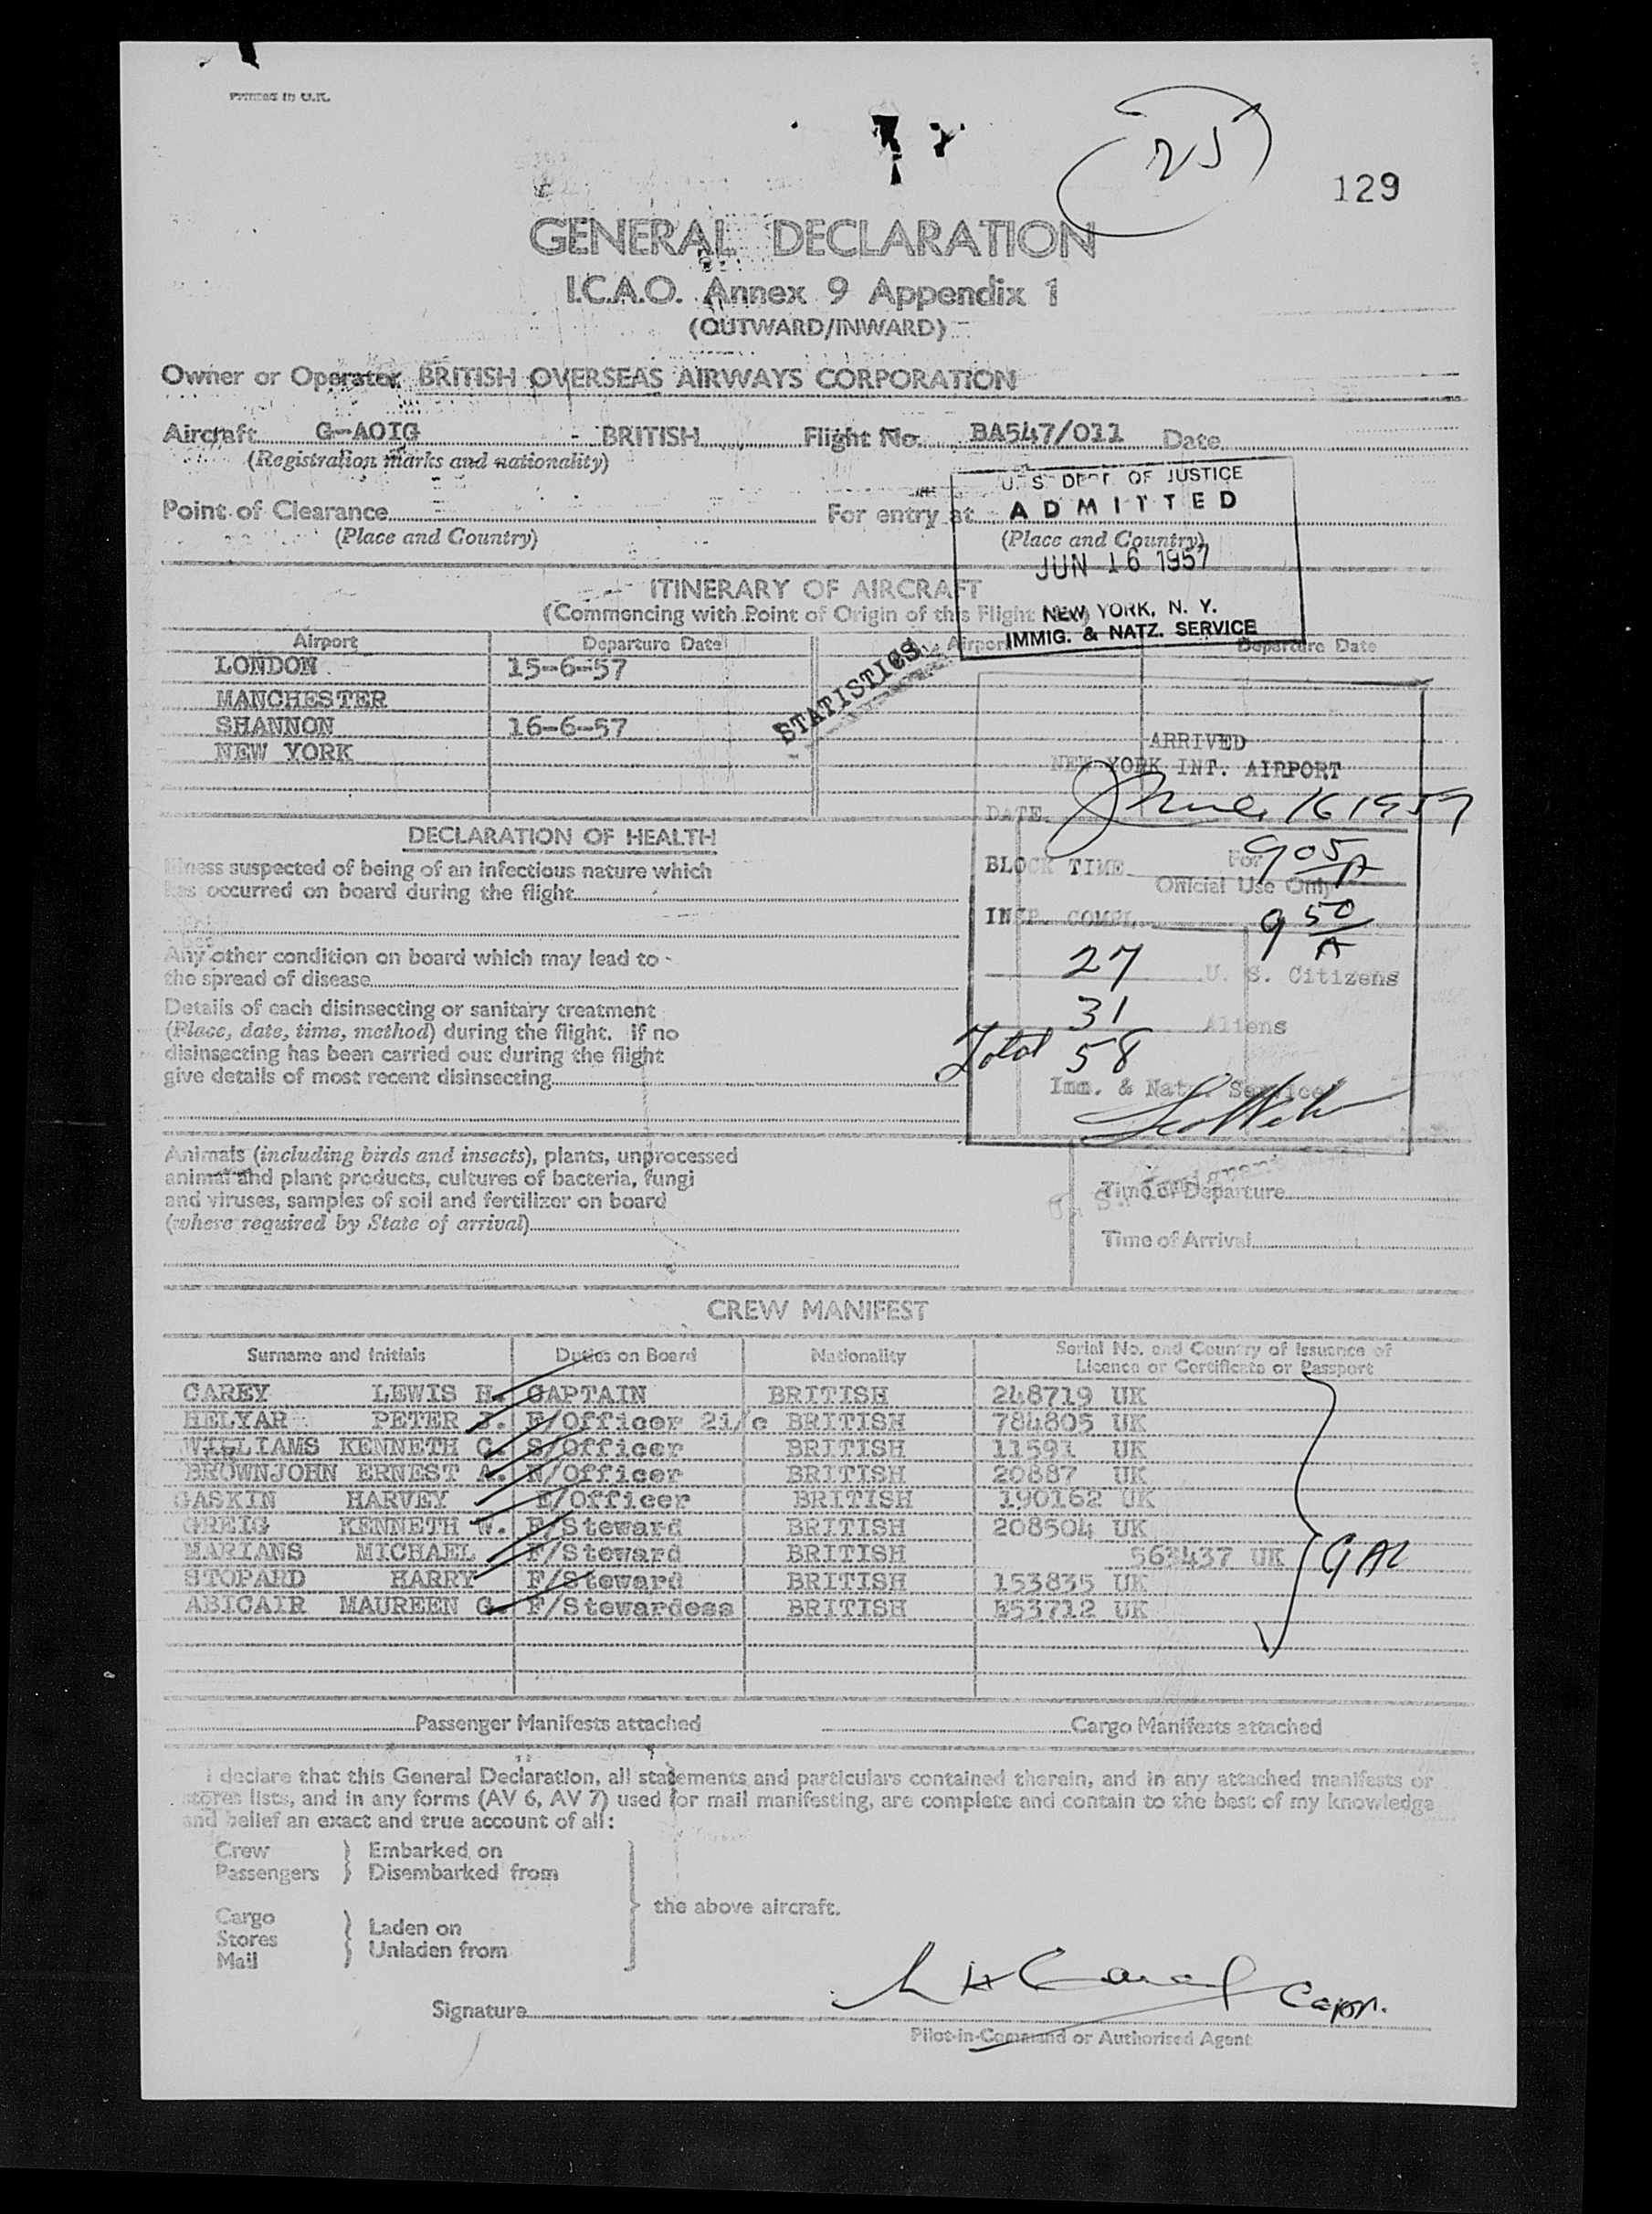 Printed in U.K.
25
129
GENERAL DECLARATION
I.C.A.O. Annex 9 Appendix 1
(OUTWARD/INWARD)
Owner or Operator BRITISH OVERSEAS AIRWAYS CORPORATION
Aircraft G-AOIG BRITISH Flight No. BA547/011 Date
(Registration marks and nationality)
U. S. DEPT OF JUSTICE
Point of Clearance For entry at ADMITTED
(Place and Country) (Place and Country)
JUN 16 1957
ITINERARY OF AIRCRAFT
(Commencing with Point of Origin of this Flight No.)
NEW YORK, N. Y.
IMMIG. & NATZ. SERVICE
Airport Departure Date Airport Departure Date
LONDON 15-6-57
STATISTICS
MANCHESTER
SHANNON 16-6-57
NEW YORK
ARRIVED
NEW YORK INT. AIRPORT
DATE June 16 1957
DECLARATION OF HEALTH
Illness suspected of being of an infectious nature which
has occurred on board during the flight
BLOCK TIME 905 A
For
Official Use Only
INSP. COMPL. 950 A
Any other condition on board which may lead to
the spread of disease
27 U. S. Citizens
Details of each disinsecting or sanitary treatment
(Place, date, time, method) during the flight. If no
disinsecting has been carried out during the flight
give details of most recent disinsecting
31 Aliens
Total 58
Imm. & Natz. Service
Animals (including birds and insects), plants, unprocessed
animal and plant products, cultures of bacteria, fungi
and viruses, samples of soil and fertilizer on board
(where required by State of arrival)
U. S. Immigrant
Time of Departure
Time of Arrival
CREW MANIFEST
Surname and Initials Duties on Board Nationality Serial No. and Country of Issuance of
Licence or Certificate or Passport
CAREY LEWIS H. CAPTAIN BRITISH 248719 UK
HELYAR PETER J. F/Officer 2i/c BRITISH 784805 UK
WILLIAMS KENNETH G. S/Officer BRITISH 11591 UK
BROWNJOHN ERNEST A. N/Officer BRITISH 20887 UK
GASKIN HARVEY E/Officer BRITISH 190162 UK
GREIG KENNETH W. F/Steward BRITISH 208504 UK
MARIANS MICHAEL F/Steward BRITISH 563437 UK
GAL
STOPARD HARRY F/Steward BRITISH 153835 UK
ABICAIR MAUREEN G. F/Stewardess BRITISH 553712 UK
Passenger Manifests attached Cargo Manifests attached
I declare that this General Declaration, all statements and particulars contained therein, and in any attached manifests or
stores lists, and in any forms (AV 6, AV 7) used for mail manifesting, are complete and contain to the best of my knowledge
and belief an exact and true account of all:
Crew Embarked on
Passengers Disembarked from
the above aircraft.
Cargo
Stores Laden on
Mail Unladen from
L H Carey Capn.
Signature
Pilot-in-Command or Authorised Agent